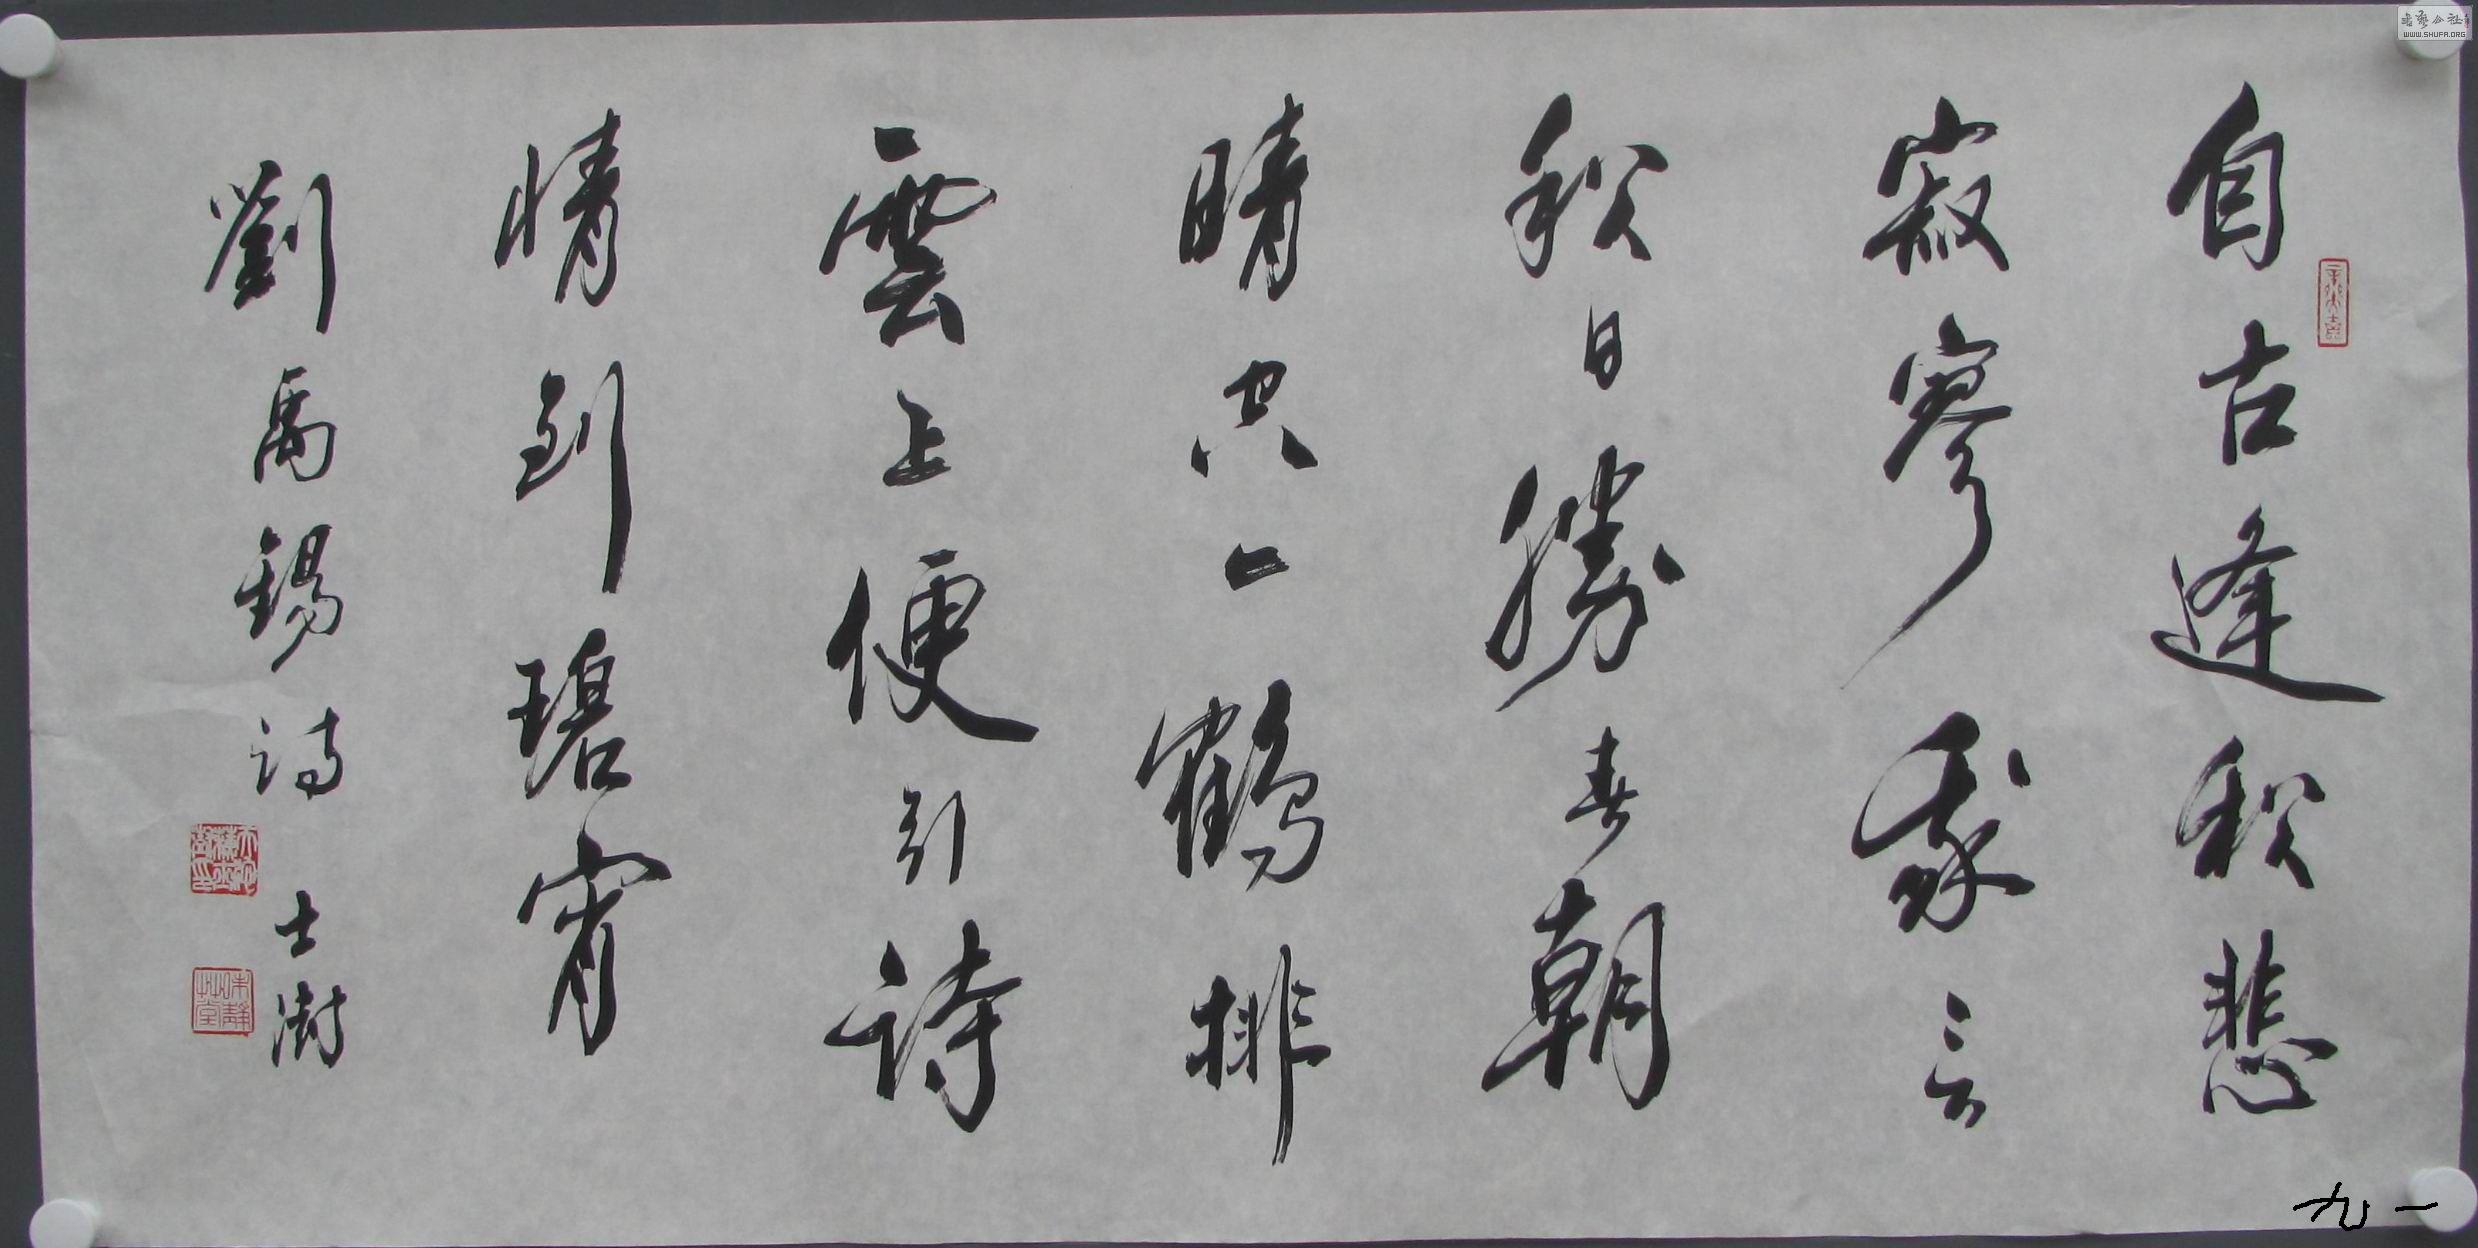 自古逢秋悲
寂寥我言
秋日勝春朝
晴空一鶴排
雲上便引詩
情到碧霄
劉禹錫詩 士澍
九一
書藝公社
WWW.SHUFA.ORG